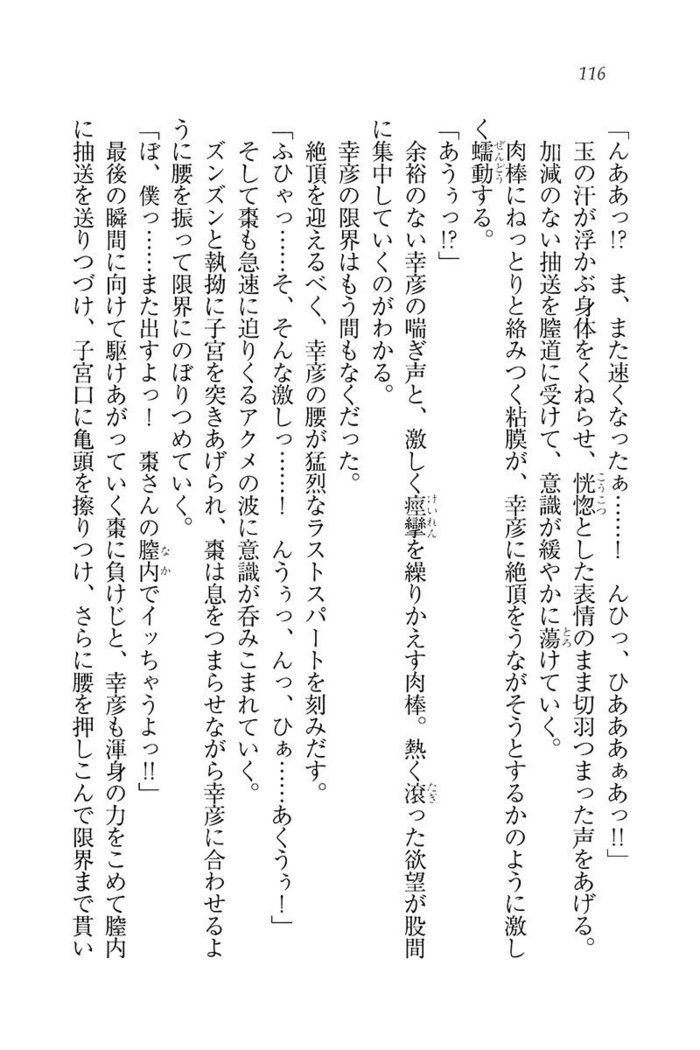 116
「んああっ!?　ま、また速くなったぁ……！　んひっ、ひあああぁあっ!!」
玉の汗が浮かぶ身体をくねらせ、恍惚とした表情のまま切羽つまった声をあげる。
加減のない抽送を膣道に受けて、意識が緩やかに蕩けていく。
肉棒にねっとりと絡みつく粘膜が、幸彦に絶頂をうながそうとするかのように激し
く蠕動する。
「あうぅっ!?」
余裕のない幸彦の喘ぎ声と、激しく痙攣を繰りかえす肉棒。熱く滾った欲望が股間
に集中していくのがわかる。
幸彦の限界はもう間もなくだった。
絶頂を迎えるべく、幸彦の腰が猛烈なラストスパートを刻みだす。
「ふひゃっ……そ、そんな激しっ……！　んうぅっ、んっ、ひぁ……あくうぅ！」
そして棗も急速に迫りくるアクメの波に意識が呑みこまれていく。
ズンズンと執拗に子宮を突きあげられ、棗は息をつまらせながら幸彦に合わせるよ
うに腰を振って限界にのぼりつめていく。
「ぼ、僕っ……また出すよっ！　棗さんの膣内でイッちゃうよっ!!」
最後の瞬間に向けて駆けあがっていく棗に負けじと、幸彦も渾身の力をこめて膣内
に抽送を送りつづけ、子宮口に亀頭を擦りつけ、さらに腰を押しこんで限界まで貫い